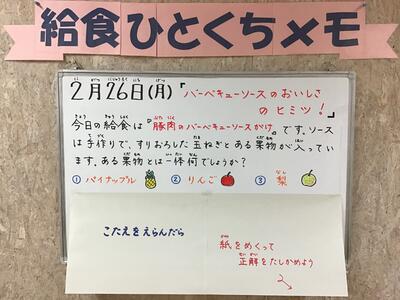 給食ひとくちメモ
2月26日(月)「バーベキューソースのおいしさ
のヒミツ！」
今日の給食は『豚肉のバーベキューソースがけ』です。ソース
は手作りで、すりおろした玉ねぎとある果物が入ってい
ます。ある果物とは一体何でしょうか？
① パイナップル ② りんご ③ 梨
こたえをえらんだら
紙をめくって
正解をたしかめよう